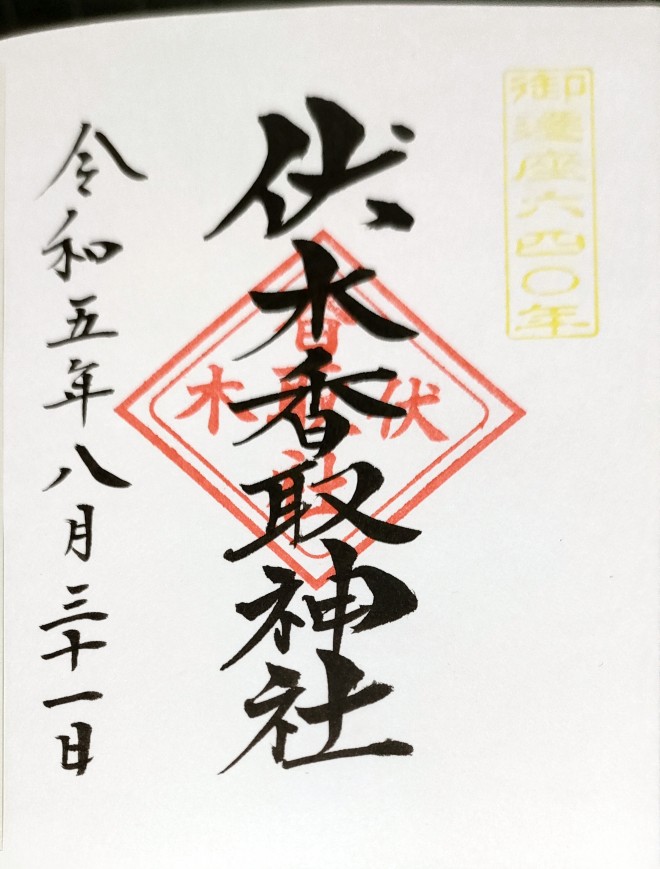 御遷座六四〇年
伏木香取神社
伏木
令和五年八月三十一日